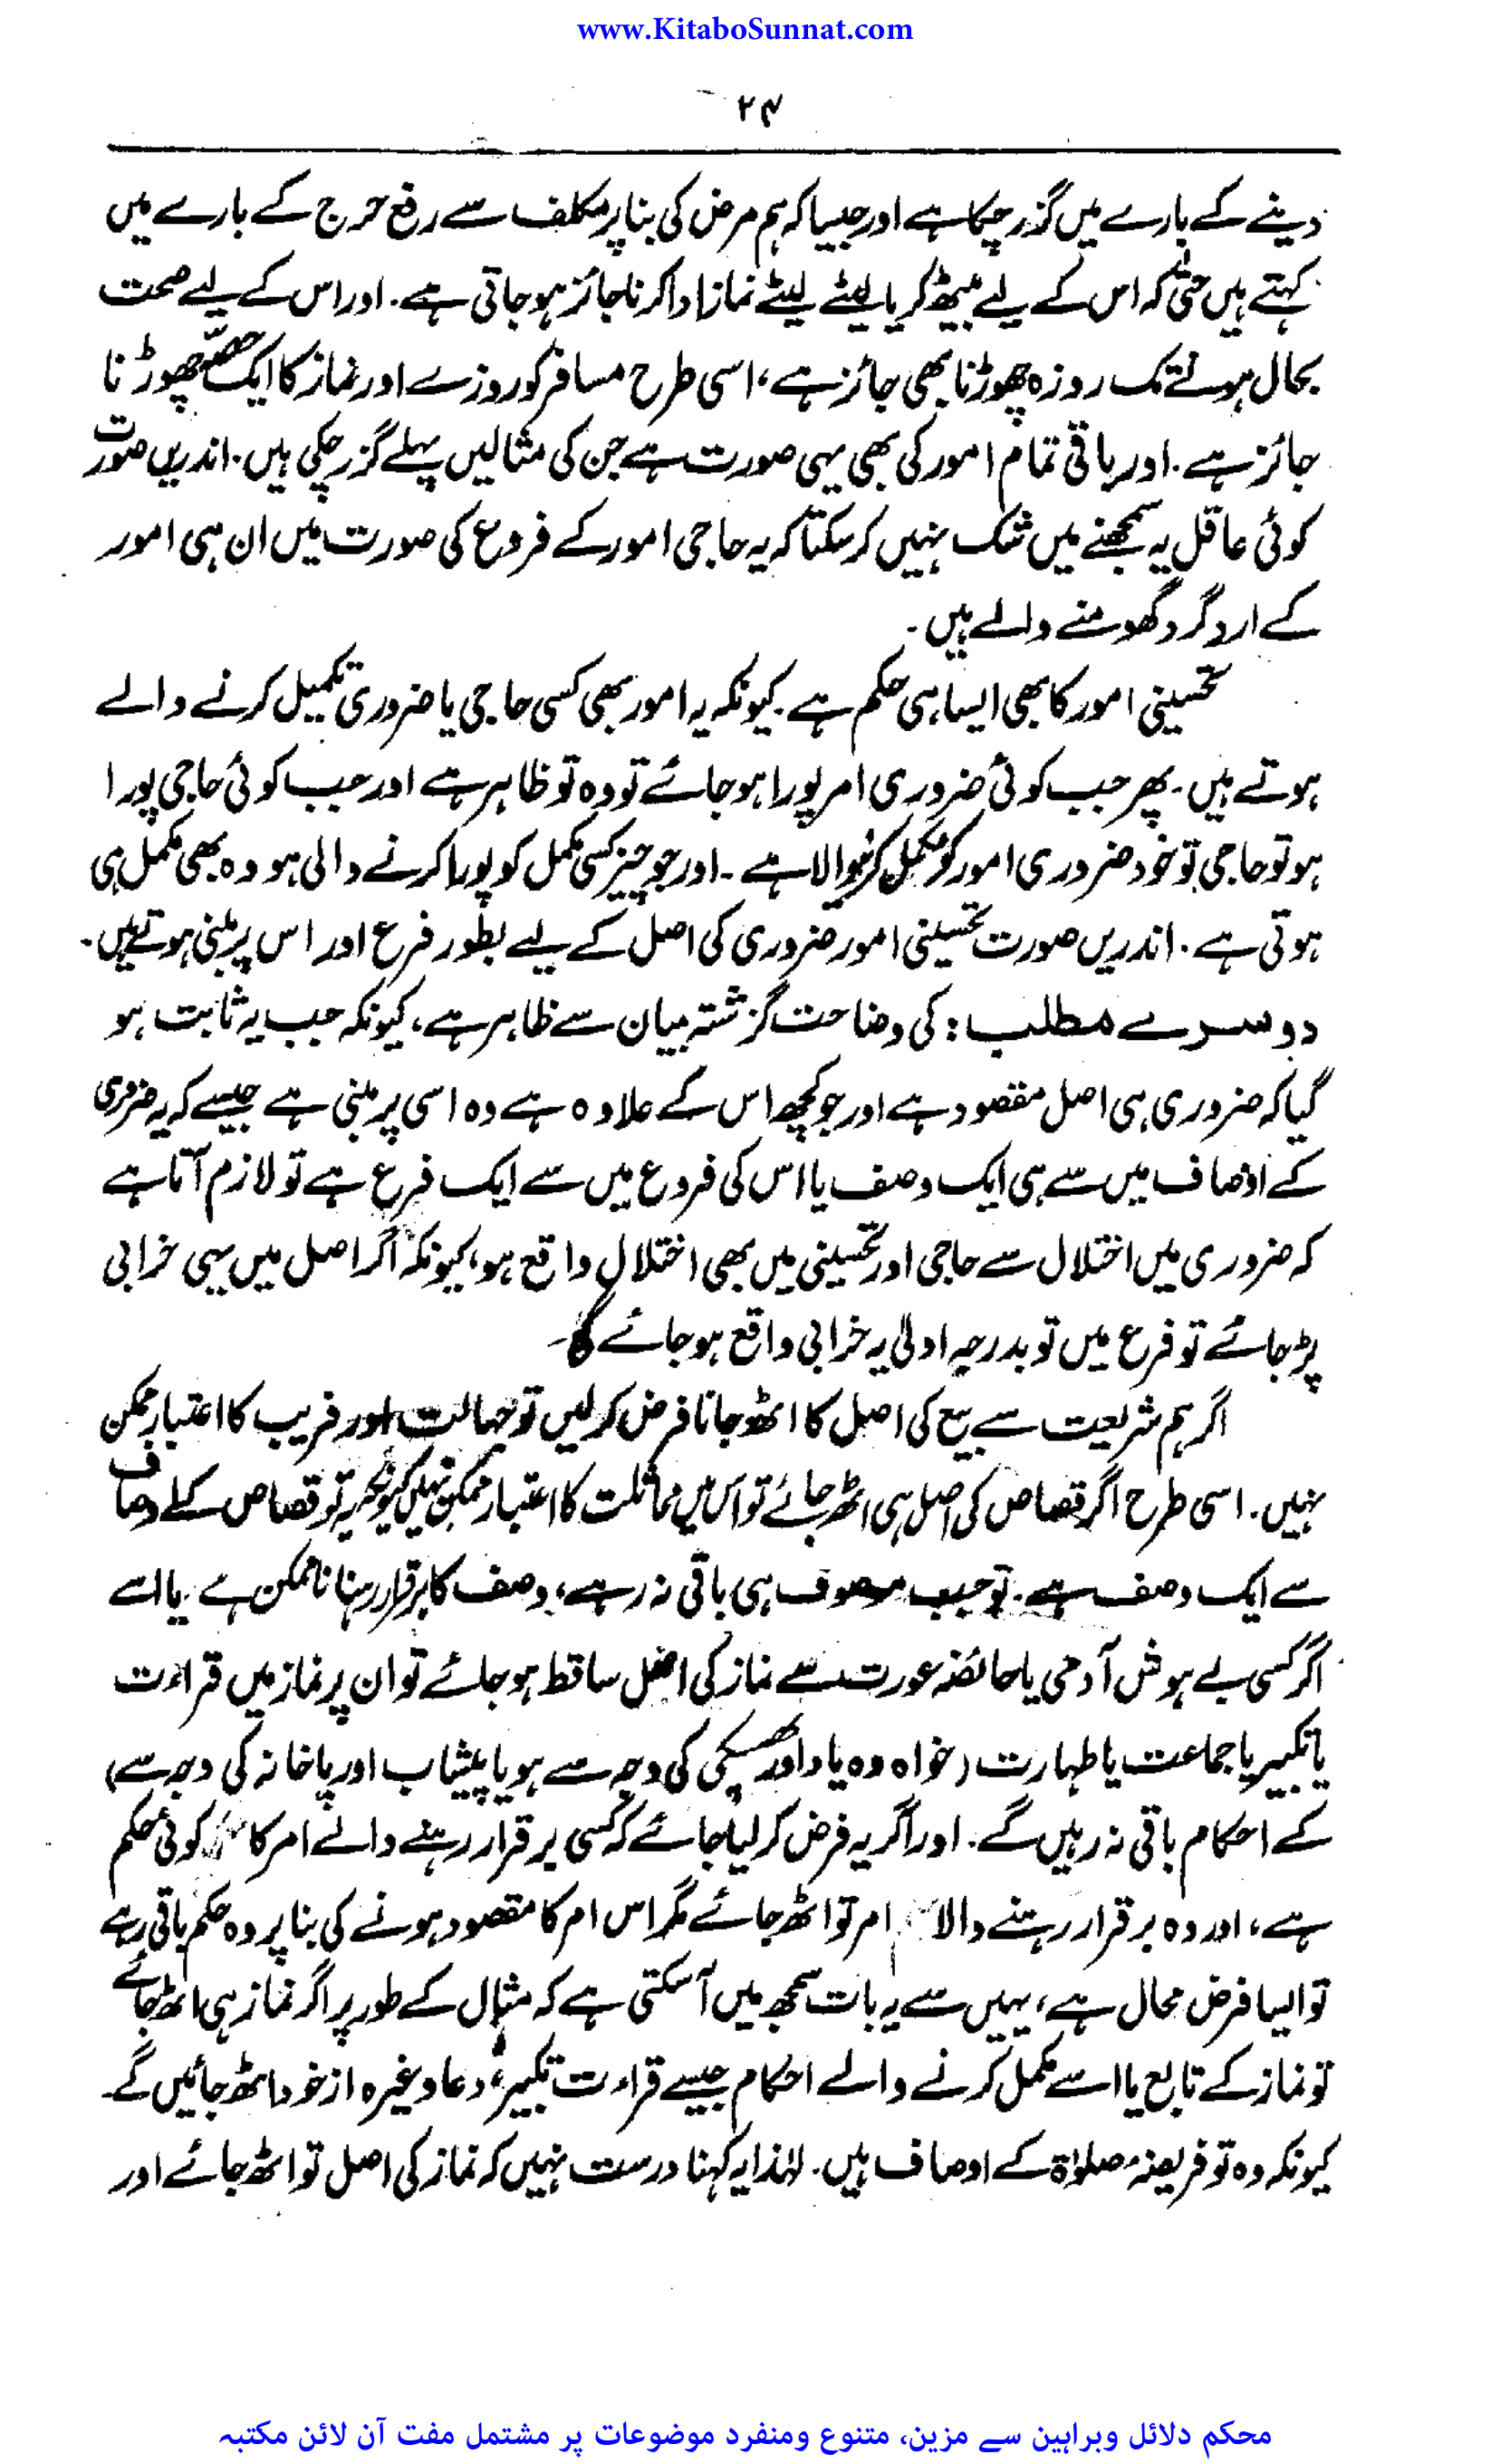 www.KitaboSunnat.com
۲۴
دینے کے بارے میں گزر چکا ہے اور جیسا کہ ہم مرض کی بنا پر مکلف سے رفع حرج کے بارے میں
کہتے ہیں حتیٰ کہ اس کے لیے بیٹھ کر یا لیٹے لیٹے نماز ادا کرنا جائز ہو جاتی ہے۔ اور اس کے لیے صحت
بحال ہونے تک روزہ چھوڑنا بھی جائز ہے، اسی طرح مسافر کو روزے اور نماز کا ایک حصّہ چھوڑنا
جائز ہے۔ اور باقی تمام امور کی بھی یہی صورت ہے جن کی مثالیں پہلے گزر چکی ہیں۔ اندریں صورت
کوئی عاقل یہ سمجھنے میں شک نہیں کر سکتا کہ یہ حاجی امور کے فروع کی صورت میں ان ہی امور
کے ارد گرد گھومنے والے ہیں۔
تحسینی امور کا بھی ایسا ہی حکم ہے۔ کیونکہ یہ امور بھی کسی حاجی یا ضروری تکمیل کرنے والے
ہوتے ہیں۔ پھر جب کوئی ضروری امر پورا ہو جائے تو وہ تو ظاہر ہے اور جب کوئی حاجی پورا
ہو تو حاجی تو خود ضروری امور کو مکمل کرنیوالا ہے۔ اور جو چیز کسی مکمل کو پورا کرنے والی ہو وہ بھی مکمل ہی
ہوتی ہے۔ اندریں صورت تحسینی امور ضروری کی اصل کے لیے بطور فرع اور اس پر مبنی ہوتے ہیں۔
دوسرے مطلب: کی وضاحت گزشتہ بیان سے ظاہر ہے، کیونکہ جب یہ ثابت ہو
گیا کہ ضروری ہی اصل مقصود ہے اور جو کچھ اس کے علاوہ ہے وہ اسی پر مبنی ہے جیسے کہ یہ ضروری
کے اوصاف میں سے ہی ایک وصف یا اس کی فروع میں سے ایک فرع ہے تو لازم آتا ہے
کہ ضروری میں اختلال سے حاجی اور تحسینی میں بھی اختلال واقع ہو، کیونکہ اگر اصل میں یہی خرابی
پڑ جائے تو فرع میں تو بدرجہ اولیٰ یہ خرابی واقع ہو جائے گا۔
اگر ہم شریعت سے بیع کی اصل کا اٹھ جانا فرض کر لیں تو جہالت اور فریب کا اعتبار ممکن
نہیں۔ اسی طرح اگر قصاص کی اصل ہی اٹھ جائے تو اس میں مماثلت کا اعتبار ممکن نہیں کیونکہ یہ تو قصاص کے اوصاف
سے ایک وصف ہے۔ تو جب موصوف ہی باقی نہ رہے، وصف کا برقرار رہنا ناممکن ہے یا اسے
اگر کسی بے ہوش آدمی یا حائضہ عورت سے نماز کی اصل ساقط ہو جائے تو ان پر نماز میں قراءت
یا تکبیر یا جماعت یا طہارت (خواہ وہ یا د اور کی وجہ سے ہو یا پیشاب اور پاخانہ کی وجہ سے)
کے احکام باقی نہ رہیں گے۔ اور اگر یہ فرض کر لیا جائے کہ کسی برقرار رہنے والے امر کا کوئی حکم
ہے، اور وہ برقرار رہنے والا امر تو اٹھ جائے مگر اس ام کا مقصود ہونے کی بنا پر وہ حکم باقی رہے
تو ایسا فرض محال ہے، یہیں سے یہ بات سمجھ میں آ سکتی ہے کہ مثال کے طور پر اگر نماز ہی اٹھ جائے
تو نماز کے تابع یا اسے مکمل کرنے والے احکام جیسے قراءت تکبیر، دعا وغیرہ از خود اٹھ جائیں گے۔
کیونکہ وہ تو فریضۂ صلوٰۃ کے اوصاف ہیں۔ لہٰذا یہ کہنا درست نہیں کہ نماز کی اصل تو اٹھ جائے اور
محکم دلائل وبراہین سے مزین، متنوع ومنفرد موضوعات پر مشتمل مفت آن لائن مکتبہ